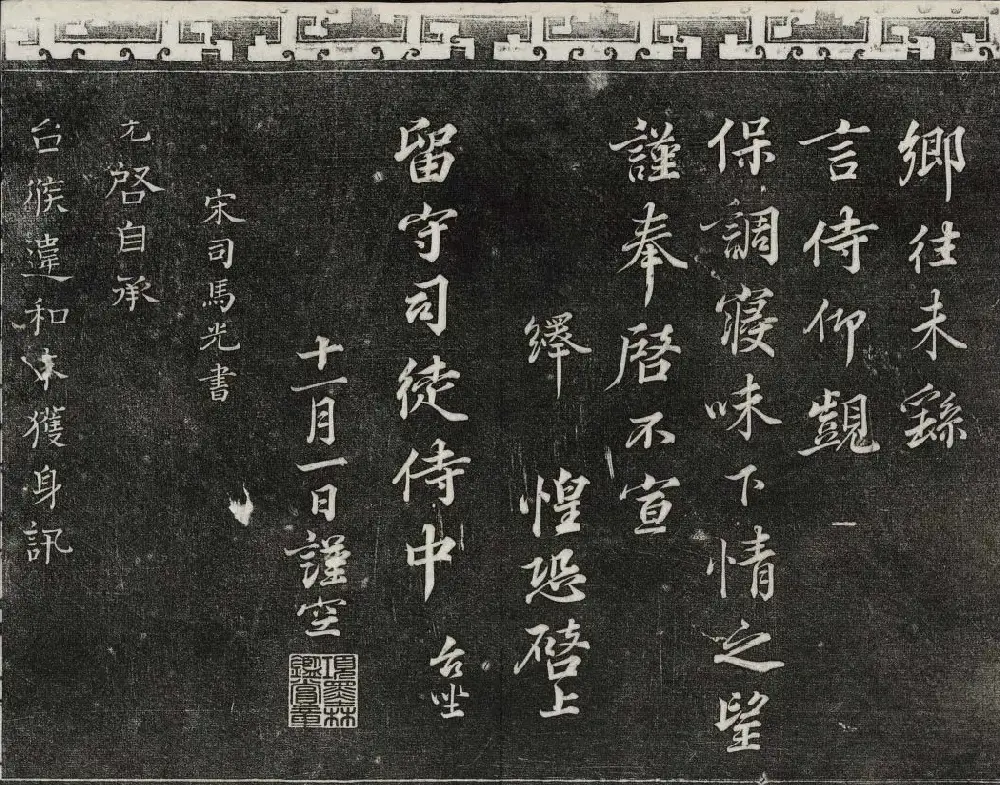 鄉往未繇
言侍仰覬
保調寢味下情之望
謹奉啓不宣
繹惶恐啓上
留守司徒侍中台坐
十一月一日謹空
項墨林鑑賞章
宋司馬光書
光啓自承
台候違和未獲身訊